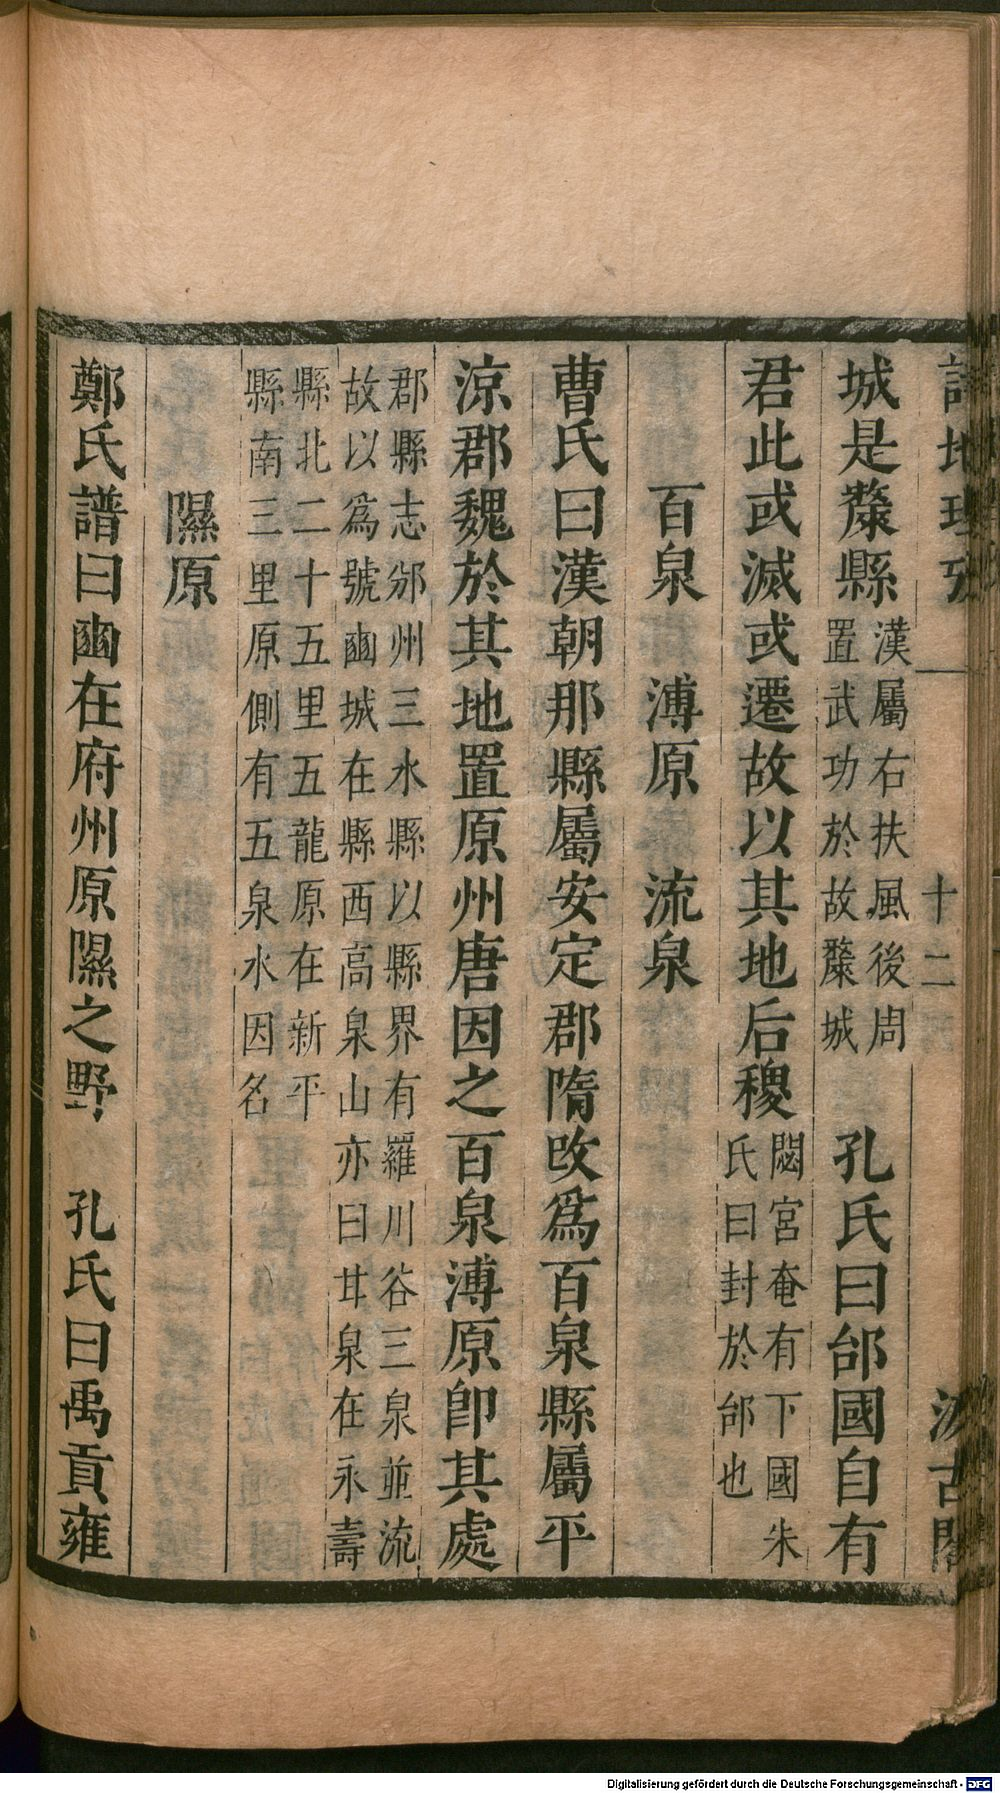 詩地理攷 十二 汲古閣
城是斄縣漢屬右扶風後周置武功於故斄城 孔氏曰邰國自有
君此或滅或遷故以其地后稷閟宮奄有下國朱氏曰封於邰也
百泉 溥原 流泉
曹氏曰漢朝那縣屬安定郡隋改爲百泉縣屬平
涼郡魏於其地置原州唐因之百泉溥原卽其處
郡縣志邠州三水縣以縣界有羅川谷三泉並流
故以爲號豳城在縣西高泉山亦曰甘泉在永壽
縣北二十五里五龍原在新平
縣南三里原側有五泉水因名
隰原
鄭氏譜曰豳在府州原隰之野 孔氏曰禹貢雍
Digitalisierung gefördert durch die Deutsche Forschungsgemeinschaft - DFG